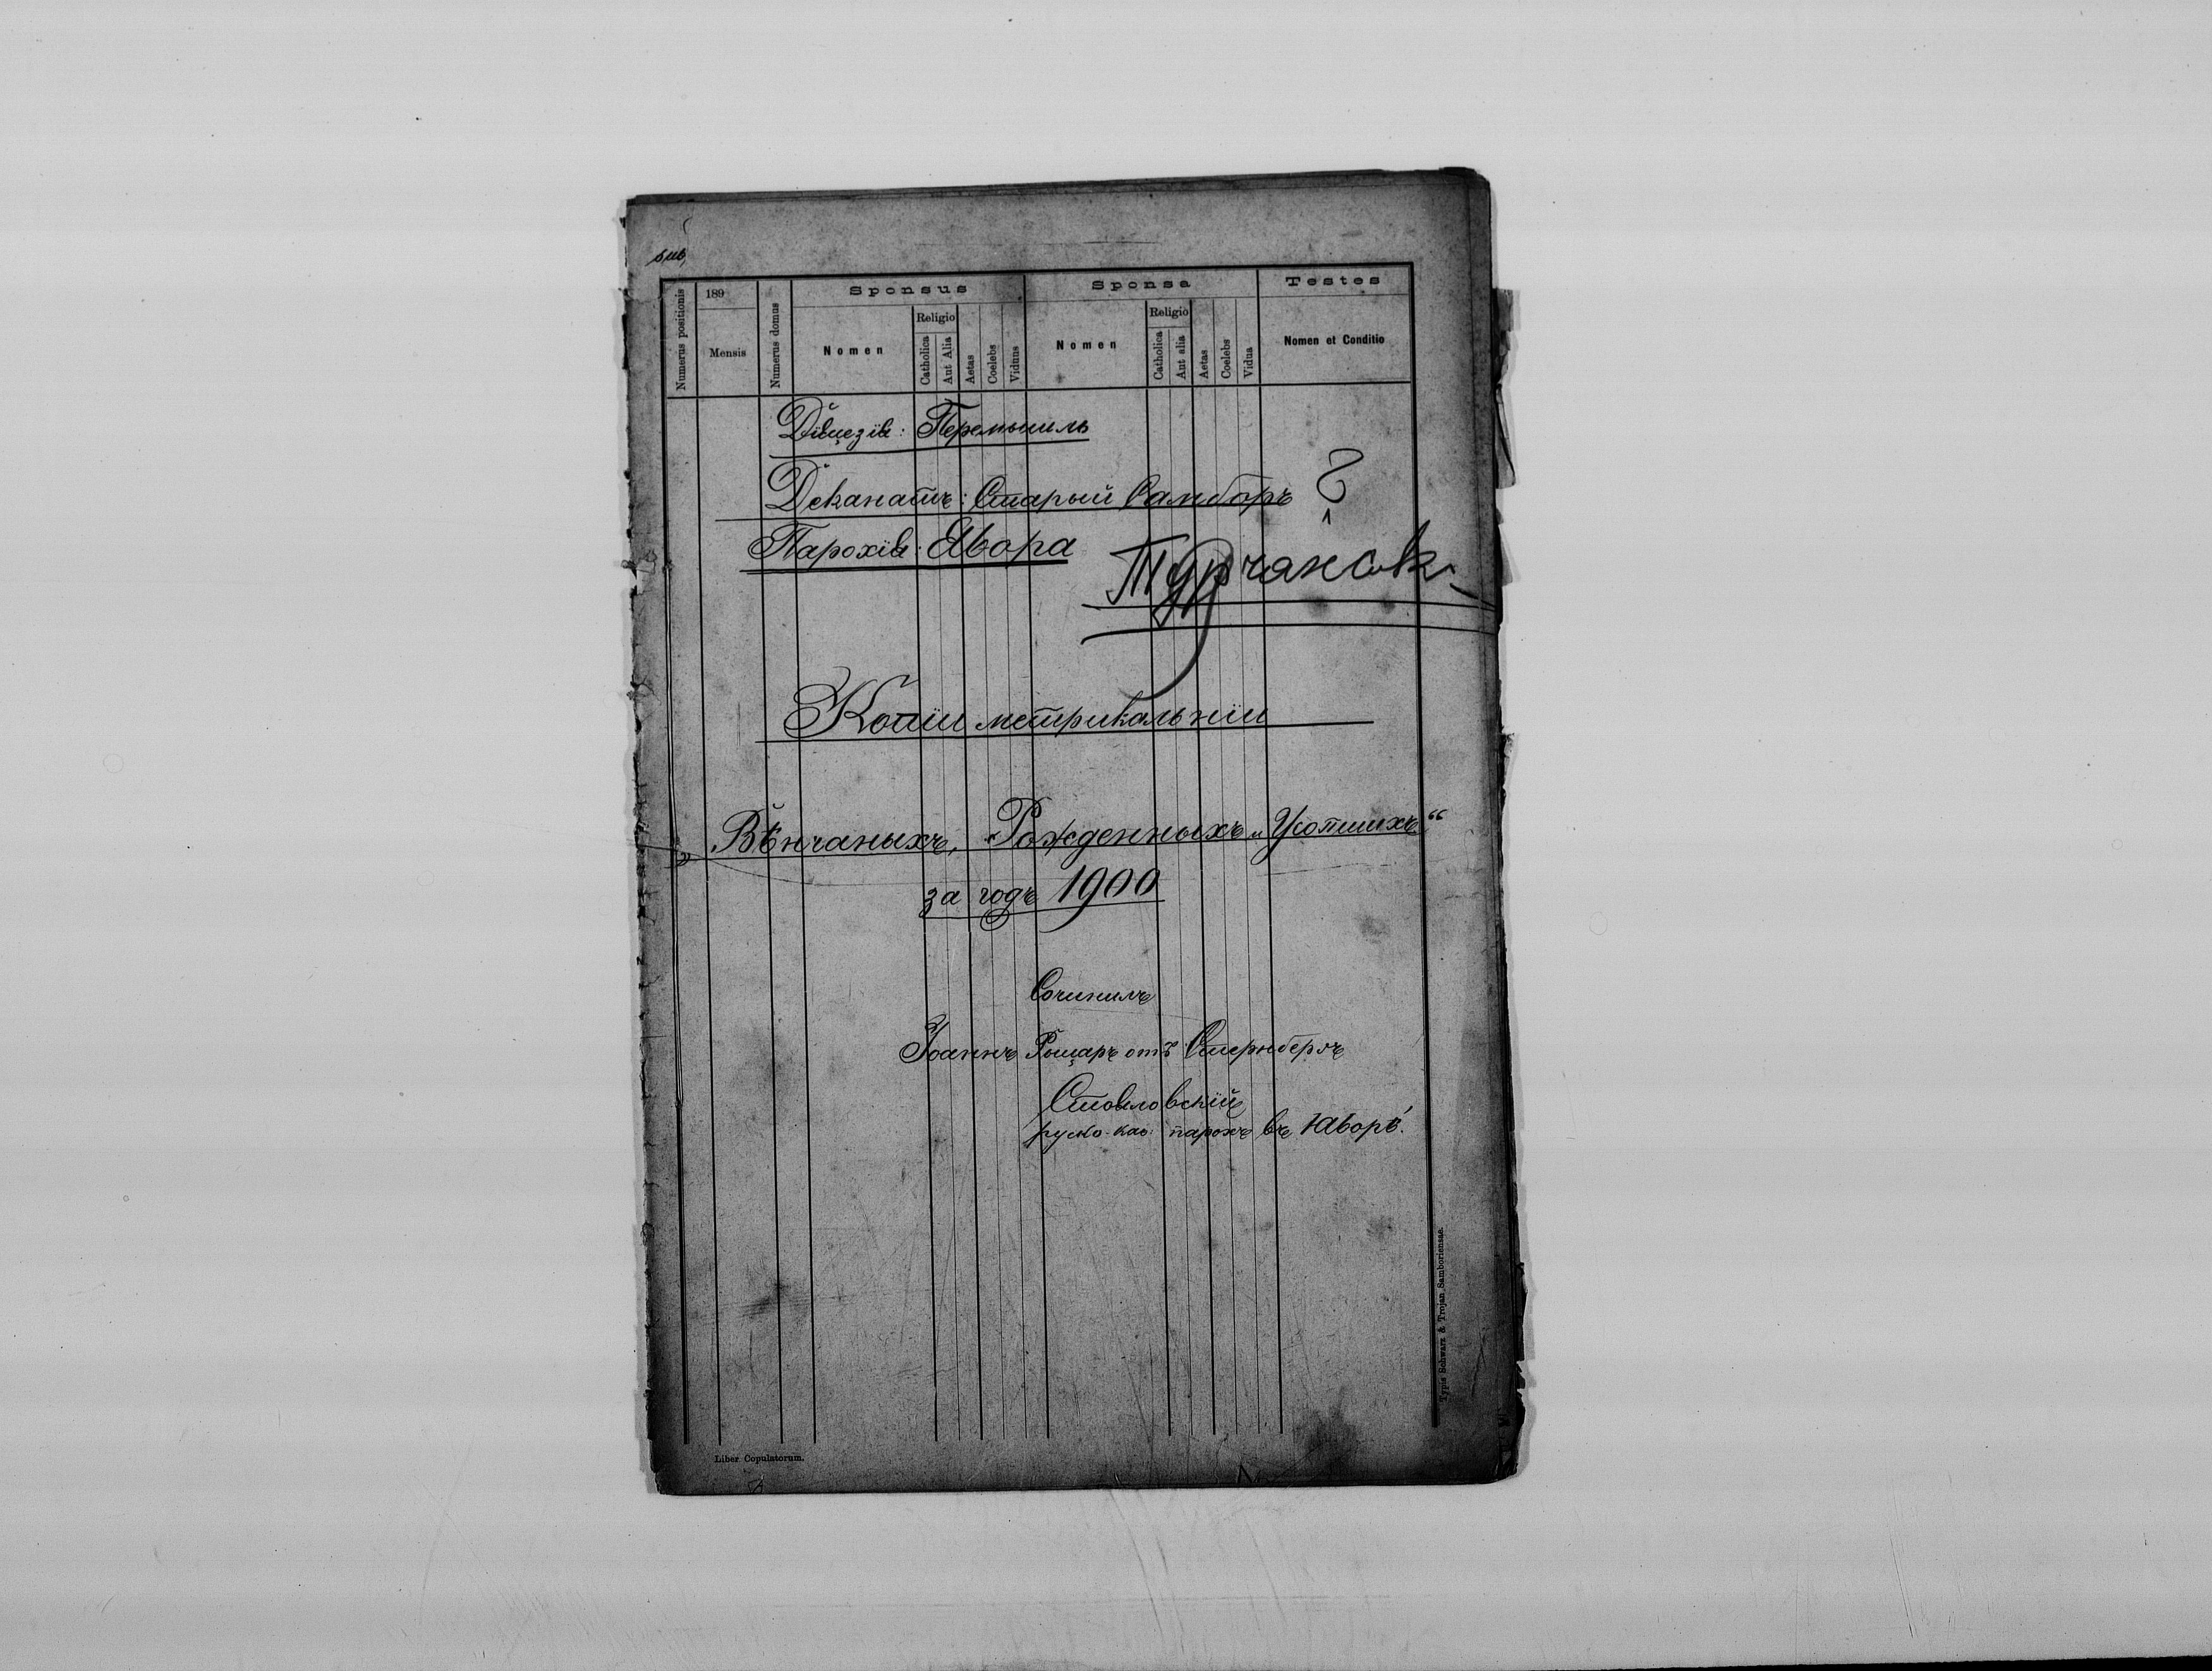 189
Sponsus
Sponsa
Testes
Numerus positionis
Mensis
Numerus domus
Nomen
Religio
Catholica
Aut Alia
Aetas
Coelebs
Viduus
Nomen
Religio
Catholica
Aut alia
Aetas
Coelebs
Vidua
Nomen et Conditio
Перемышль
Деканатъ: Старый Самборъ ?
Парохія: Явора
Турчанск.
Копіи метрикальніи
„Вѣнчаныхъ, Рожденныхъ и Усопшихъ“
за годъ 1900
Сочинилъ
Іоаннъ Рыцарь отъ Стернбергъ
руско-каѳ: парохъ въ Яворѣ.
Typis Schwarz & Trojan Samboriensae.
Liber Copulatorum.